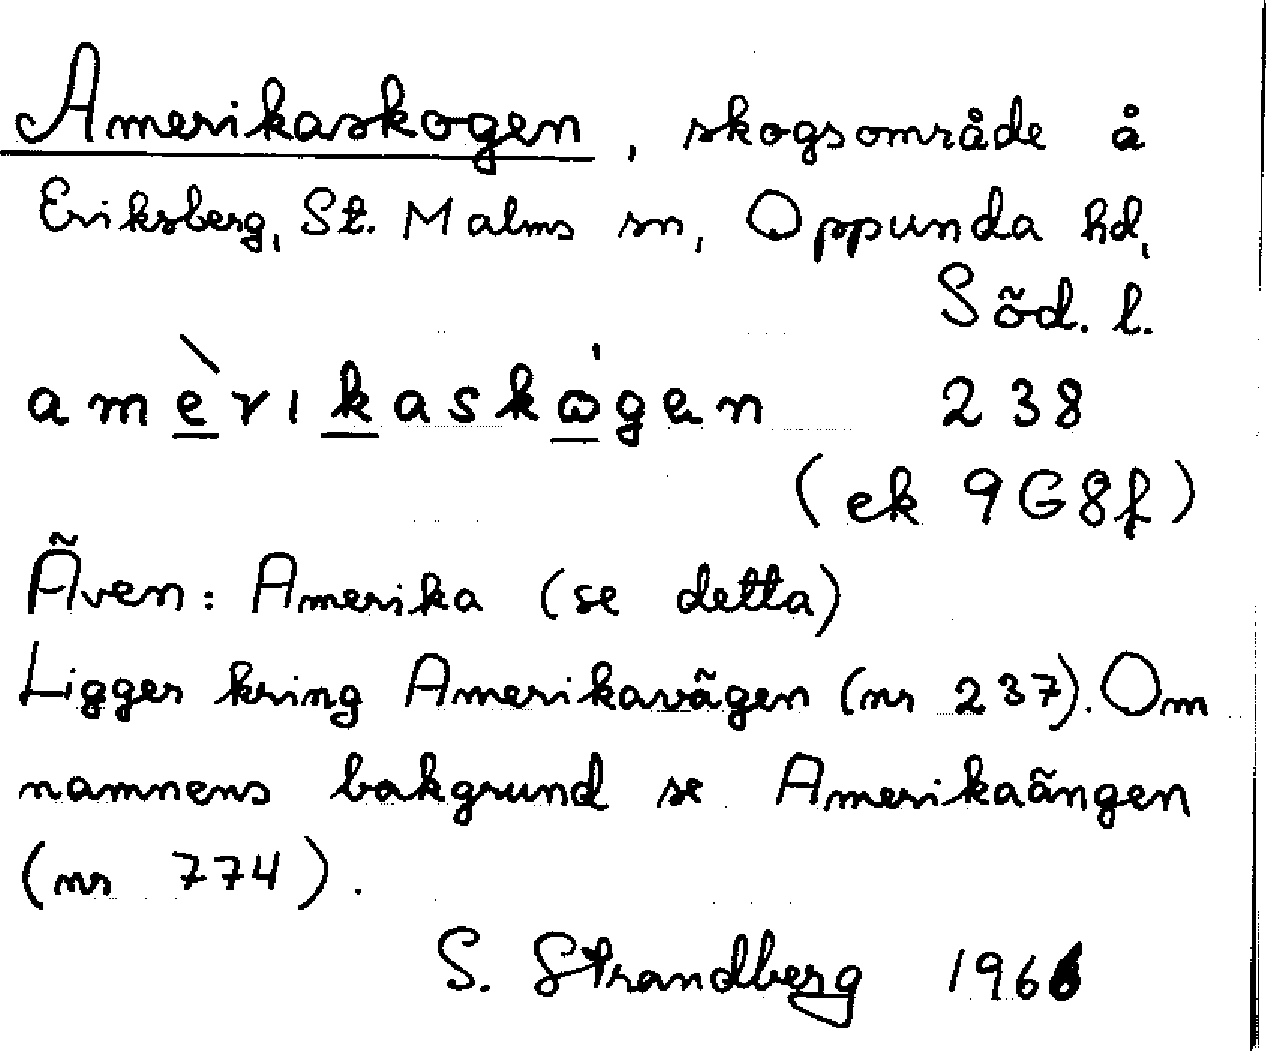 Amerikaskogen, skogsområde å
Eriksberg, St. Malms sn, Oppunda hd,
Söd. l.
amèrikaskògen 238
(ek 9G8f)
Även: Amerika (se detta)
Ligger kring Amerikavägen (nr 237). Om
namnens bakgrund se Amerikaängen
(nr 774).
S. Strandberg 1966